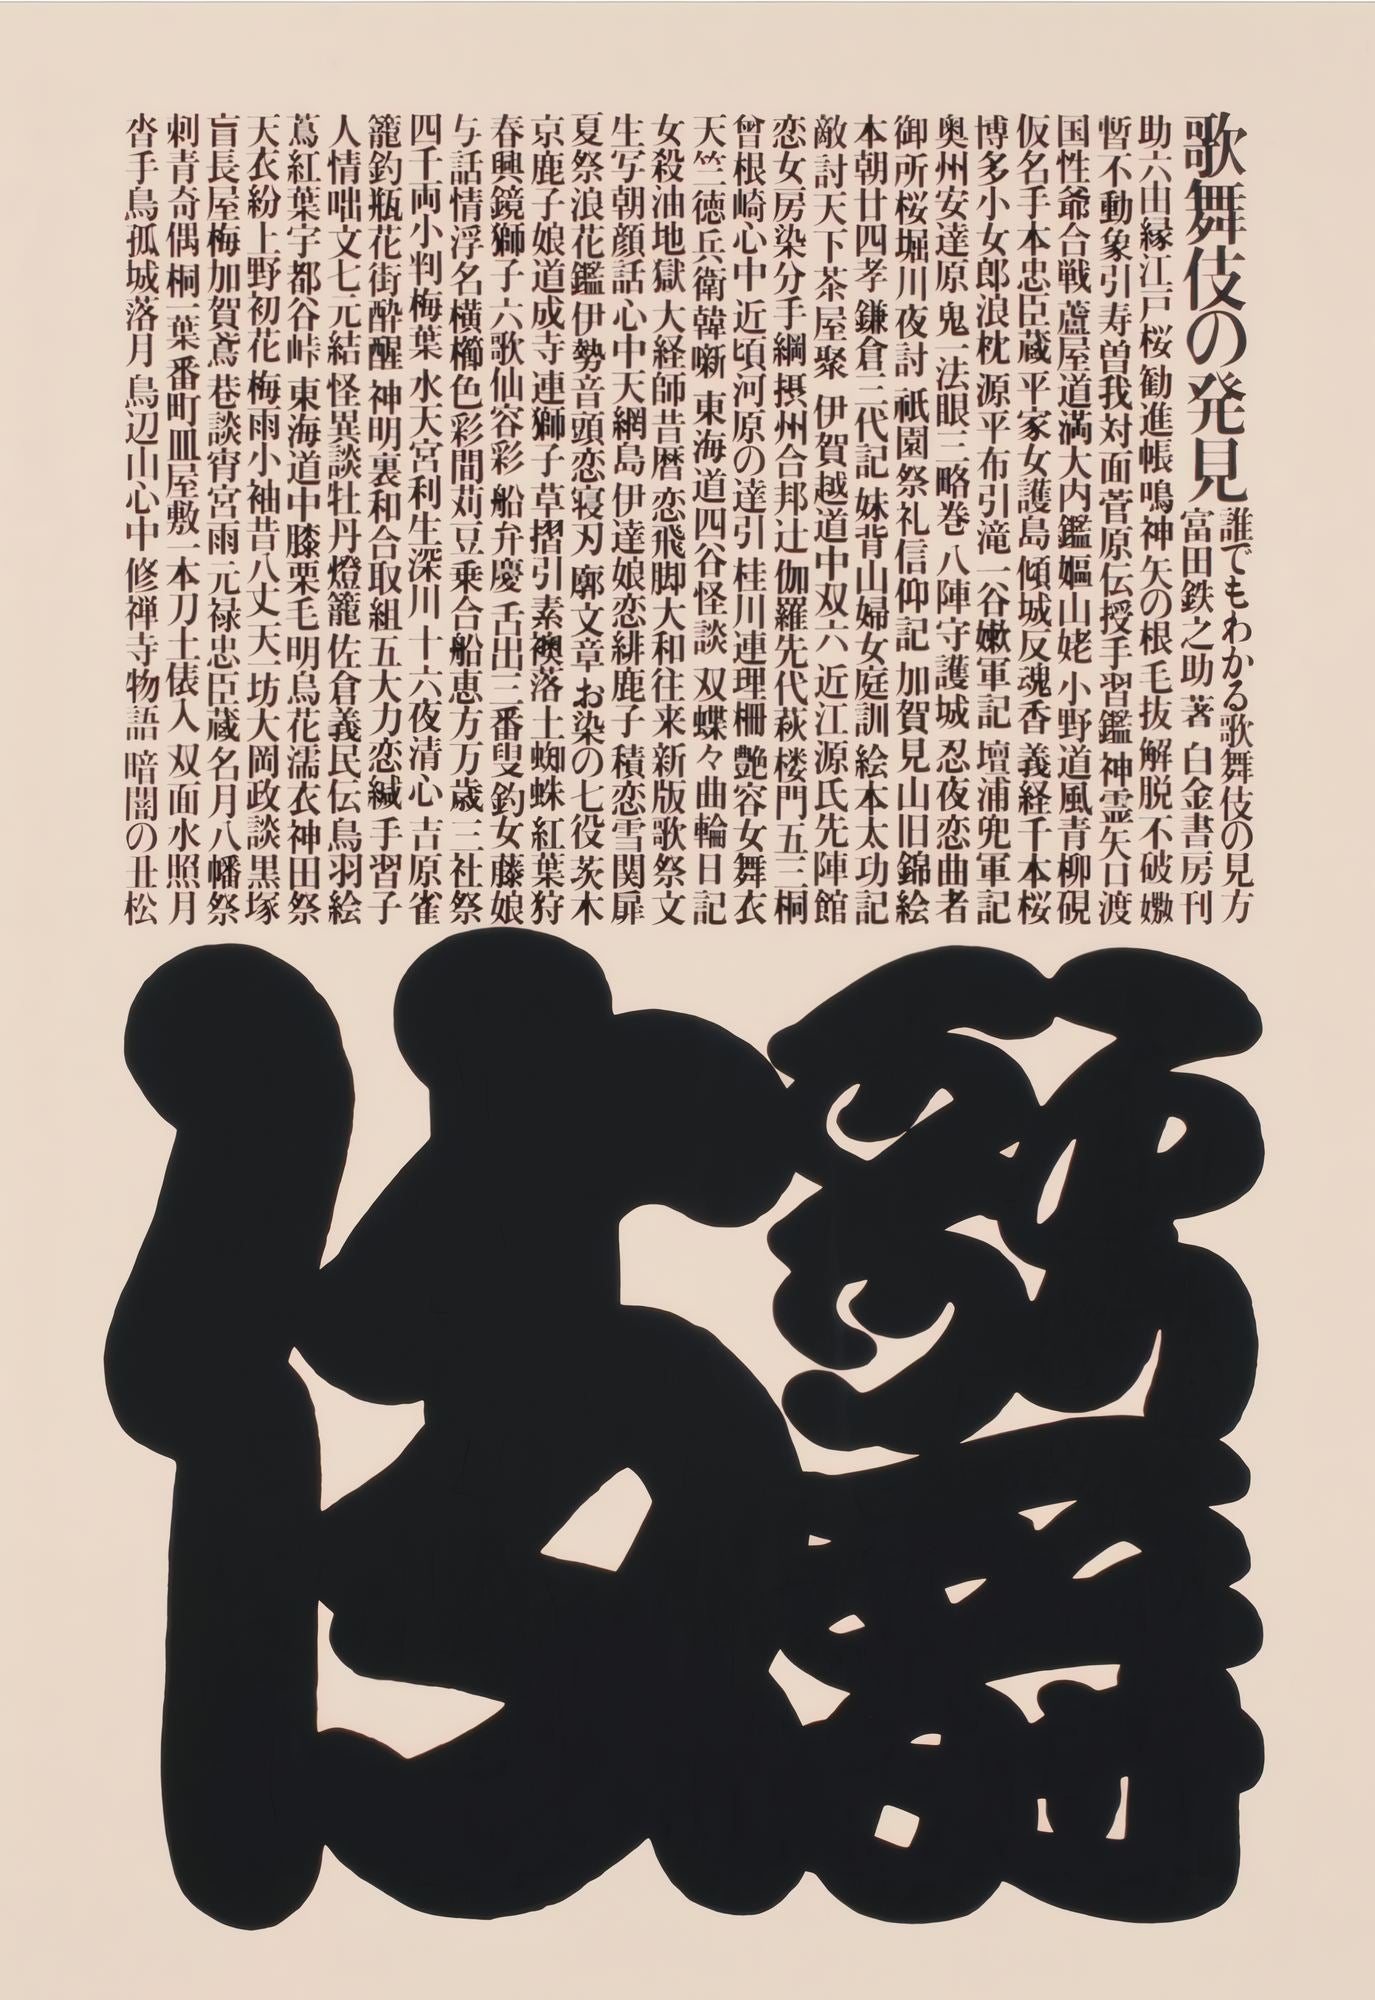 歌舞伎の発見
誰でもわかる歌舞伎の見方
富田鉄之助 著 白金書房刊
助六由縁江戸桜 勧進帳 鳴神 矢の根 毛抜 解脱 不破 嫐
暫 不動 象引 寿曽我対面 菅原伝授手習鑑 神霊矢口渡
国性爺合戦 蘆屋道満大内鑑 嫗山姥 小野道風青柳硯
仮名手本忠臣蔵 平家女護島 傾城反魂香 義経千本桜
博多小女郎浪枕 源平布引滝 一谷嫩軍記 壇浦兜軍記
奥州安達原 鬼一法眼三略巻 八陣守護城 忍夜恋曲者
御所桜堀川夜討 祇園祭礼信仰記 加賀見山旧錦絵
本朝廿四孝 鎌倉三代記 妹背山婦女庭訓 絵本太功記
敵討天下茶屋聚 伊賀越道中双六 近江源氏先陣館
恋女房染分手綱 摂州合邦辻 伽羅先代萩 楼門五三桐
曾根崎心中 近頃河原の達引 桂川連理柵 艶容女舞衣
天竺徳兵衛韓噺 東海道四谷怪談 双蝶々曲輪日記
女殺油地獄 大経師昔暦 恋飛脚大和往来 新版歌祭文
生写朝顔話 心中天網島 伊達娘恋緋鹿子 積恋雪関扉
夏祭浪花鑑 伊勢音頭恋寝刃 廓文章 お染の七役 茨木
京鹿子娘道成寺 連獅子 草摺引 素襖落 土蜘蛛 紅葉狩
春興鏡獅子 六歌仙容彩 船弁慶 舌出三番叟 釣女 藤娘
与話情浮名横櫛 色彩間苅豆 乗合船恵方万歳 三社祭
四千両小判梅葉 水天宮利生深川 十六夜清心 吉原雀
籠釣瓶花街酔醒 神明裏和合取組 五大力恋緘 手習子
人情咄文七元結 怪異談牡丹燈籠 佐倉義民伝 鳥羽絵
蔦紅葉宇都谷峠 東海道中膝栗毛 明烏花濡衣 神田祭
天衣紛上野初花 梅雨小袖昔八丈 天一坊大岡政談 黒塚
盲長屋梅加賀鳶 巷談宵宮雨 元禄忠臣蔵 名月八幡祭
刺青奇偶 桐一葉 番町皿屋敷 一本刀土俵入 双面水照月
沓手鳥孤城落月 鳥辺山心中 修禅寺物語 暗闇の丑松